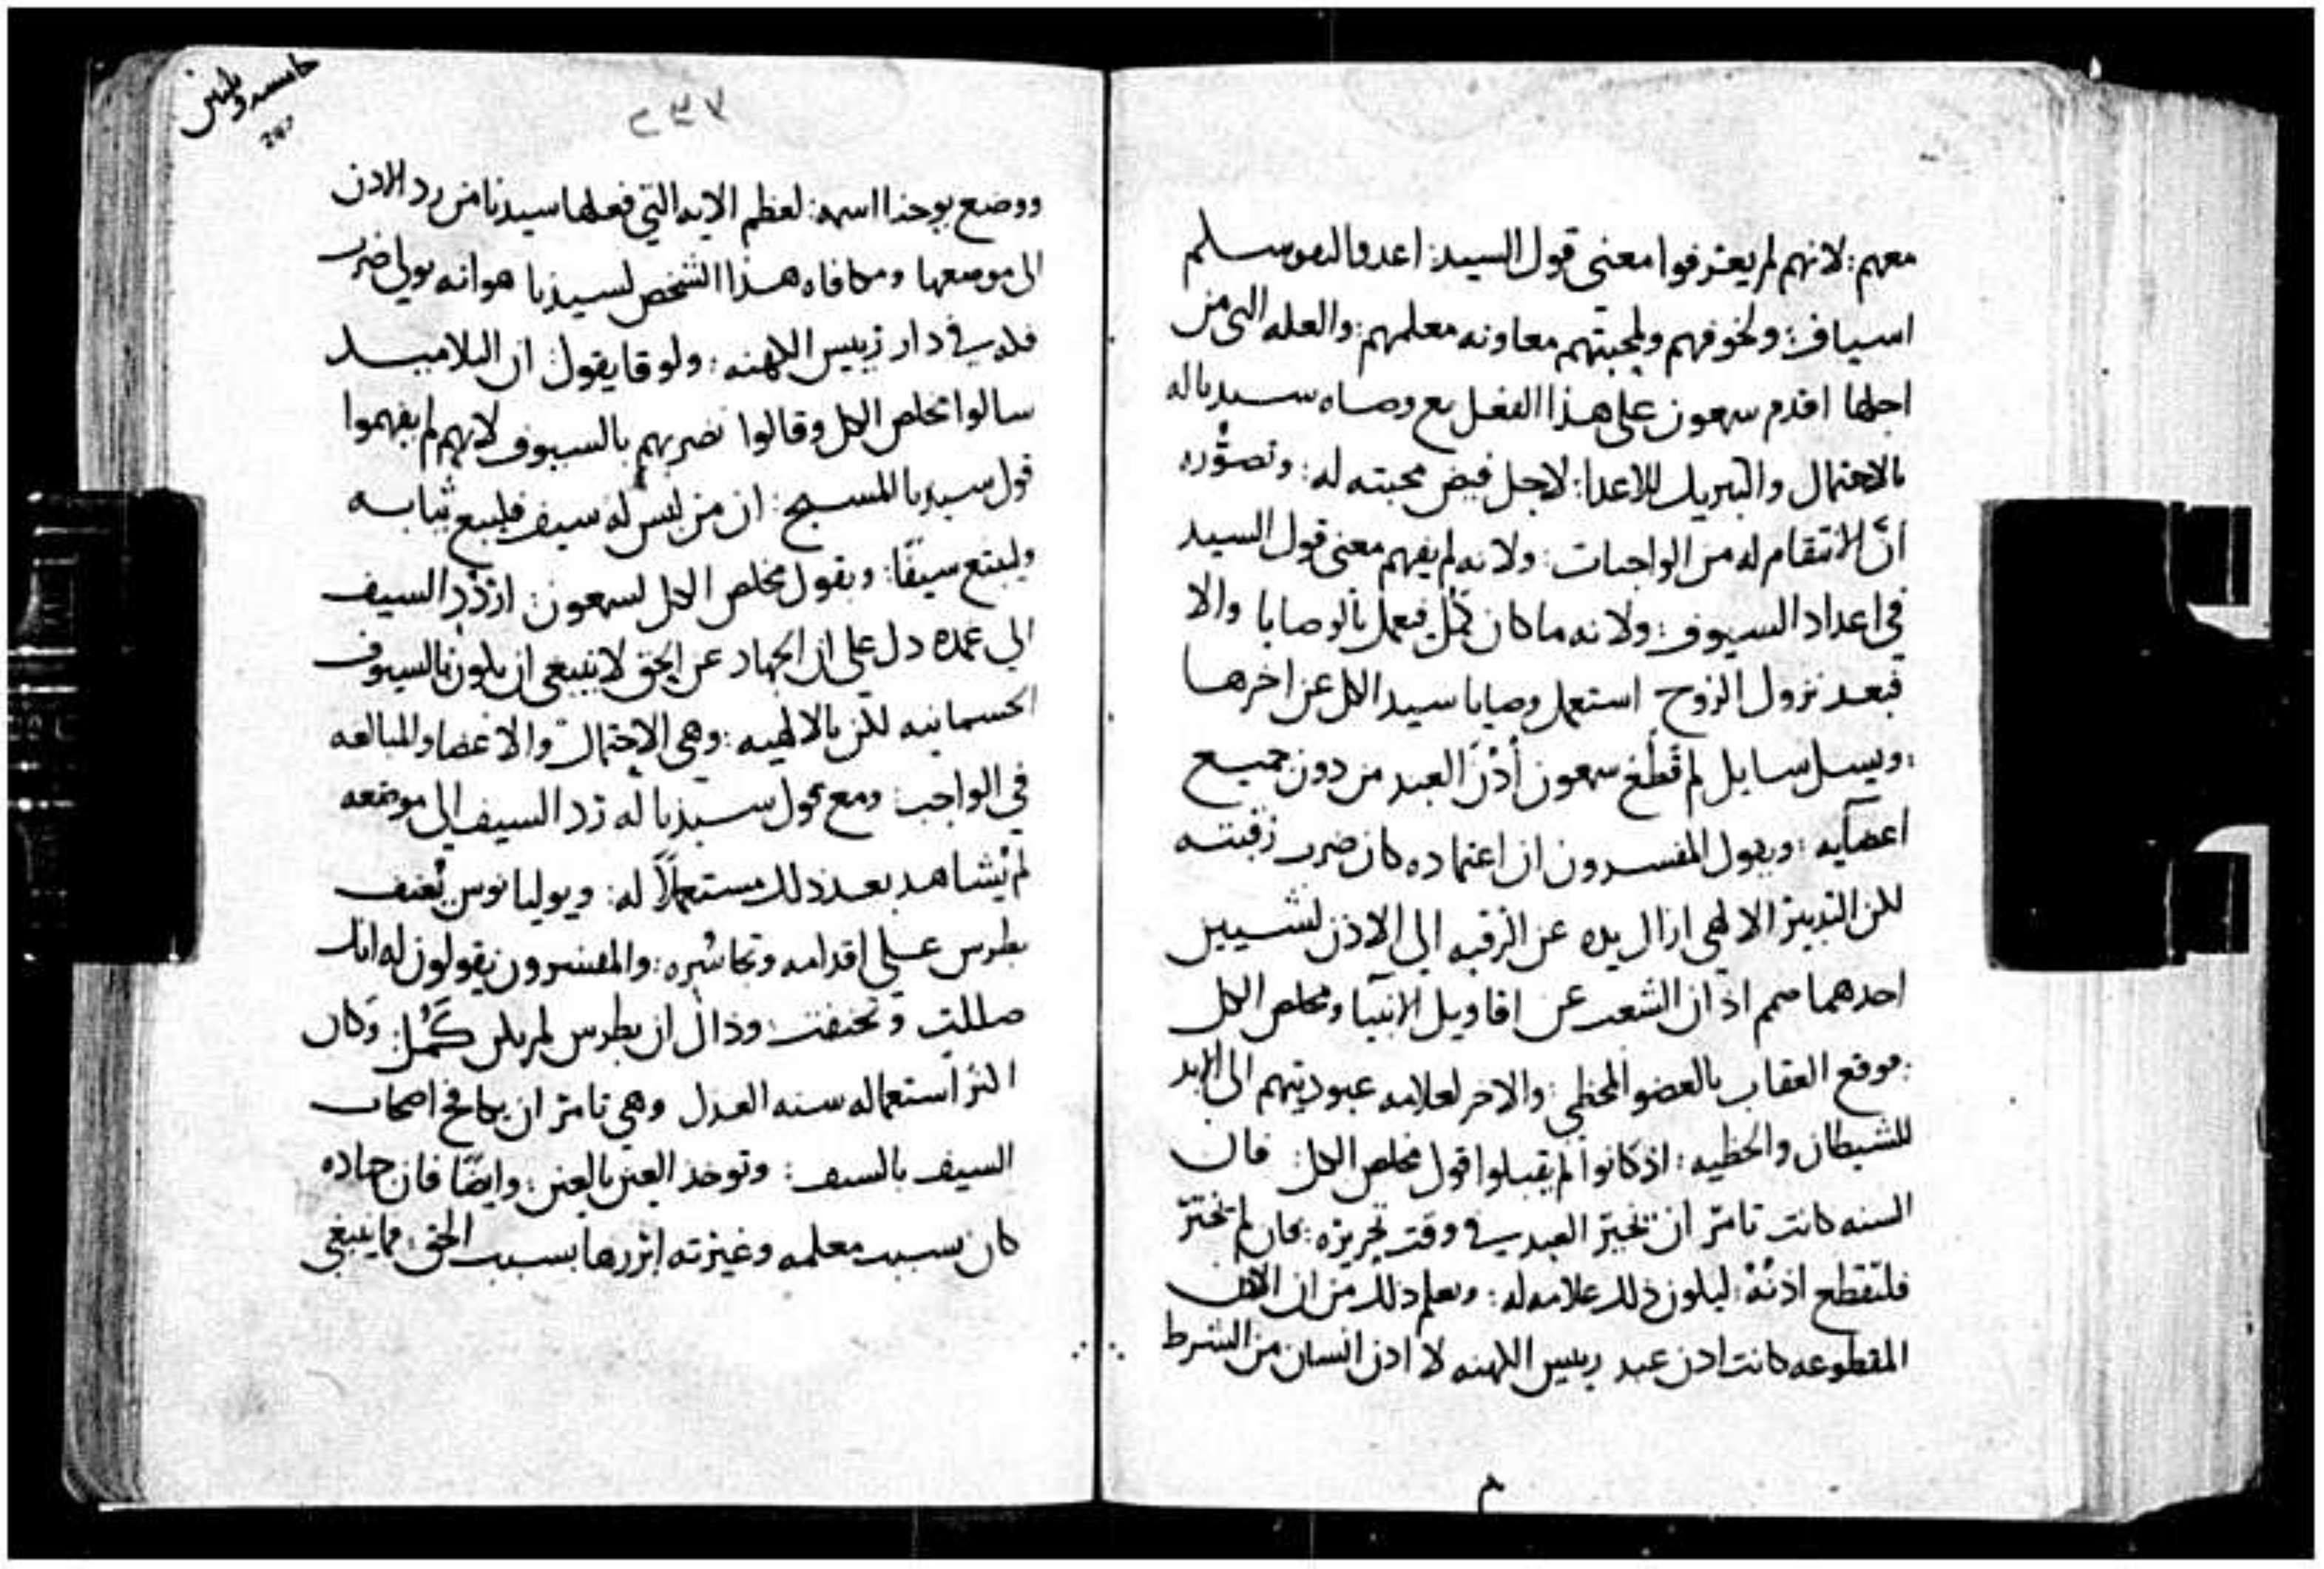 معهم: لانهم لم يعترفوا معنى قول السيد: اعدوا لنفوسكم
اسياف: ولخوفهم ولمحبتهم معاونه معلمهم: والعله التي من
اجلها اقدم سمعون على هذا الفعل مع وصاه سيدنا له
بالاحتمال والتبريك للاعدا: لاجل فيض محبته له: وتصوُّره
انَّ الانتقام له من الواجبات: ولانه لم يفهم معنى قول السيد
في اعداد السيوف: ولانه ما كان كَمُل فيعمل بالوصايا والا
فبعد نزول الروح استعمل وصايا سيد الكل عن اخرها
: ويسل سايل لم قَطَع سمعون أُذْنَ العبد من دون جميع
اعضآيه: ويقول المفسرون ان اعتماده كان ضرب رقبته
لكن التدبير الالهي ازال يده عن الرقبه الى الاذن لشيين
احدهما صمم اذان الشعب عن اقاويل الانبيا ومخلص الكل
: موقع العقاب بالعضو المخطي: والاخر لعلامه عبوديتهم الى الابد
للشيطان والخطيه: اذ كانوا لم يقبلوا قول مخلص الكل: فان
السنه كانت تامر ان تخير العبد في وقت تحريره: فان لم تختر
فلتقطع اذنُهُ: ليكون ذلك علامه له: ويعلم ذلك من ان الاذن
المقطوعه كانت اذن عبد رييس الكهنه لا اذن انسان من الشرط
٢٣٧
ووضع يوحنا اسمه: لعظم الايه التي فعلها سيدنا من رد الاذن
الى موضعها ومكافاه هذا الشخص لسيدنا هو انه يولي ضرب
فكه في دار رييس الكهنه: ولوقا يقول: ان التلاميد
سالوا مخلص الكل وقالوا نضربهم بالسيوف لانهم لم يفهموا
قول سيدنا المسيح: ان من ليس له سيف فليبيع ثيابه
وليبتع سيفًا: وبقول مخلص الكل لسمعون: ازدُدِ السيف
الي غمده دل على ان الجهاد عن الحق لا ينبغي ان يكون بالسيوف
الجسمانيه لكن بالالهيه: وهي الاحتمال والاغضا والمبالغه
في الواجب: ومع قول سيدنا له رد السيف الى موضعه
لم يُشاهد بعد ذلك مستعملًا له: ويوليانوس يُعنف
بطرس على اقدامه وتجاسُره: والمفسرون يقولون له انك
ضللت وتحنفت: وذاك ان بطرس لم يكن كَمُل: وكان
اكثر استعماله سنه العدل وهي تامر ان يكافح اصحاب
السيف بالسيف: وتوخذ العين بالعين: وايضًا فان جهاده
كان بسبب معلمه وغيرته ابرزها بسبب الحق: فما ينبغي